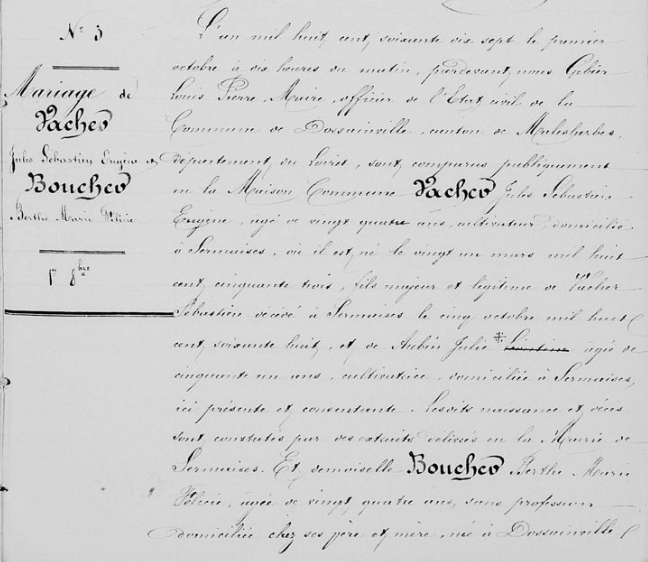 N° 3
Mariage de
Vacher
Jules Sébastien Eugène et
Boucher
Berthe Marie Félicie
1er 8bre
L'an mil huit cent soixante dix sept le premier
octobre à dix heures du matin, pardevant nous Gibier
Louis Pierre, Maire, officier de l'Etat civil de la
Commune de Dossainville, canton de Malesherbes,
département du Loiret, sont comparus publiquement
en la Maison Commune Vacher Jules Sébastien
Eugène, agé de vingt quatre ans, cultivateur domicilié
à Sermaises, où il est né le vingt un mars mil huit
cent cinquante trois, fils majeur et légitime de Vacher
Sébastien décédé à Sermaises le cinq octobre mil huit
cent soixante huit, et de Aubin Julie * agée de
cinquante un ans, cultivatrice, domiciliée à Sermaises,
ici présente et consentante. Lesdits naissance et décès
sont constatés par des extraits délivrés en la Mairie de
Sermaises. Et demoiselle Boucher Berthe Marie
Félicie, agée de vingt quatre ans, sans profession
domiciliée chez ses père et mère, née à Dossainville